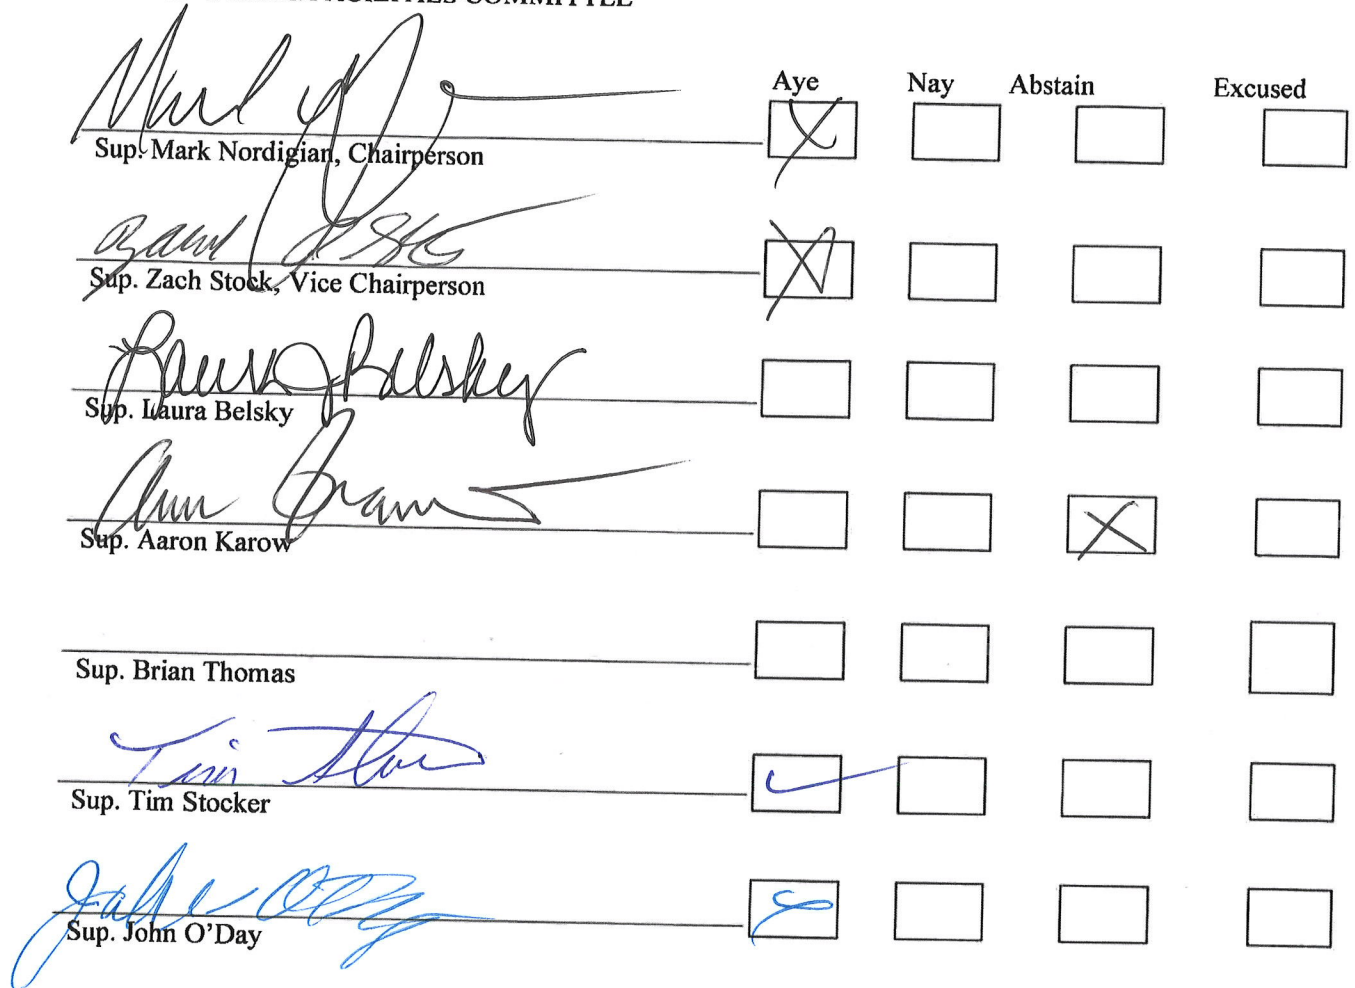 FACILITIES COMMITTEE
Aye Nay Abstain Excused
Mark
Sup. Mark Nordigian, Chairperson
Sup. Zach Stock, Vice Chairperson
Laura J Belsky
Sup. Laura Belsky
Sup. Aaron Karow
Sup. Brian Thomas
Tim
Sup. Tim Stocker
John O'Day
Sup. John O'Day